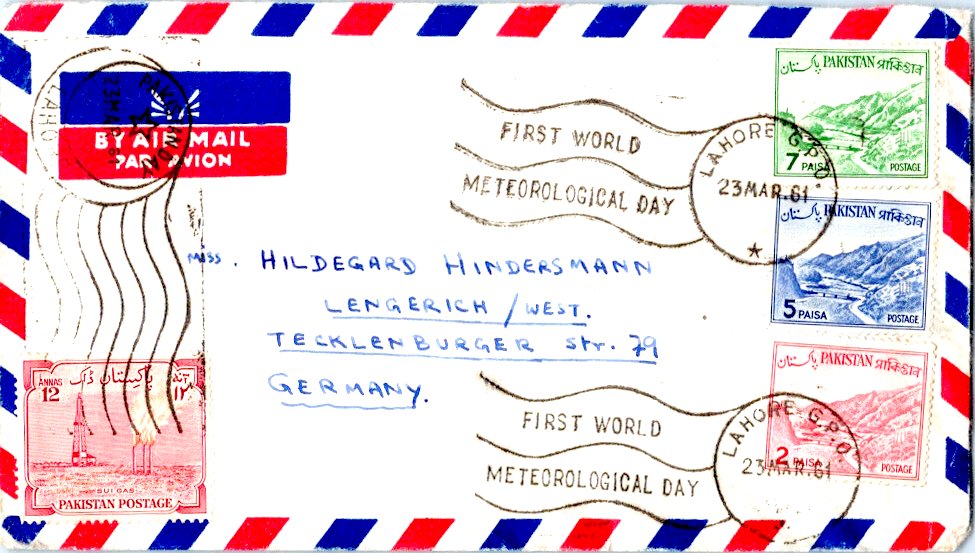 LAHO
PAKISTAN DAK
23 MAR 61
BY AIR MAIL
PAR AVION
FIRST WORLD
METEOROLOGICAL DAY
LAHORE G.P.O.
23 MAR. 61
پاکستان PAKISTAN পাকিস্তান
7 PAISA POSTAGE
MISS. HILDEGARD HINDERSMANN
LENGERICH / WEST.
TECKLENBURGER Str. 79
GERMANY.
پاکستان PAKISTAN পাকিস্তান
5 PAISA POSTAGE
پاکستان PAKISTAN পাকিস্তান
2 PAISA POSTAGE
FIRST WORLD
METEOROLOGICAL DAY
LAHORE G.P.O.
23 MAR. 61
ANNAS پاکستان ڈاک آنہ
12 ۱۲
SUI GAS
PAKISTAN POSTAGE